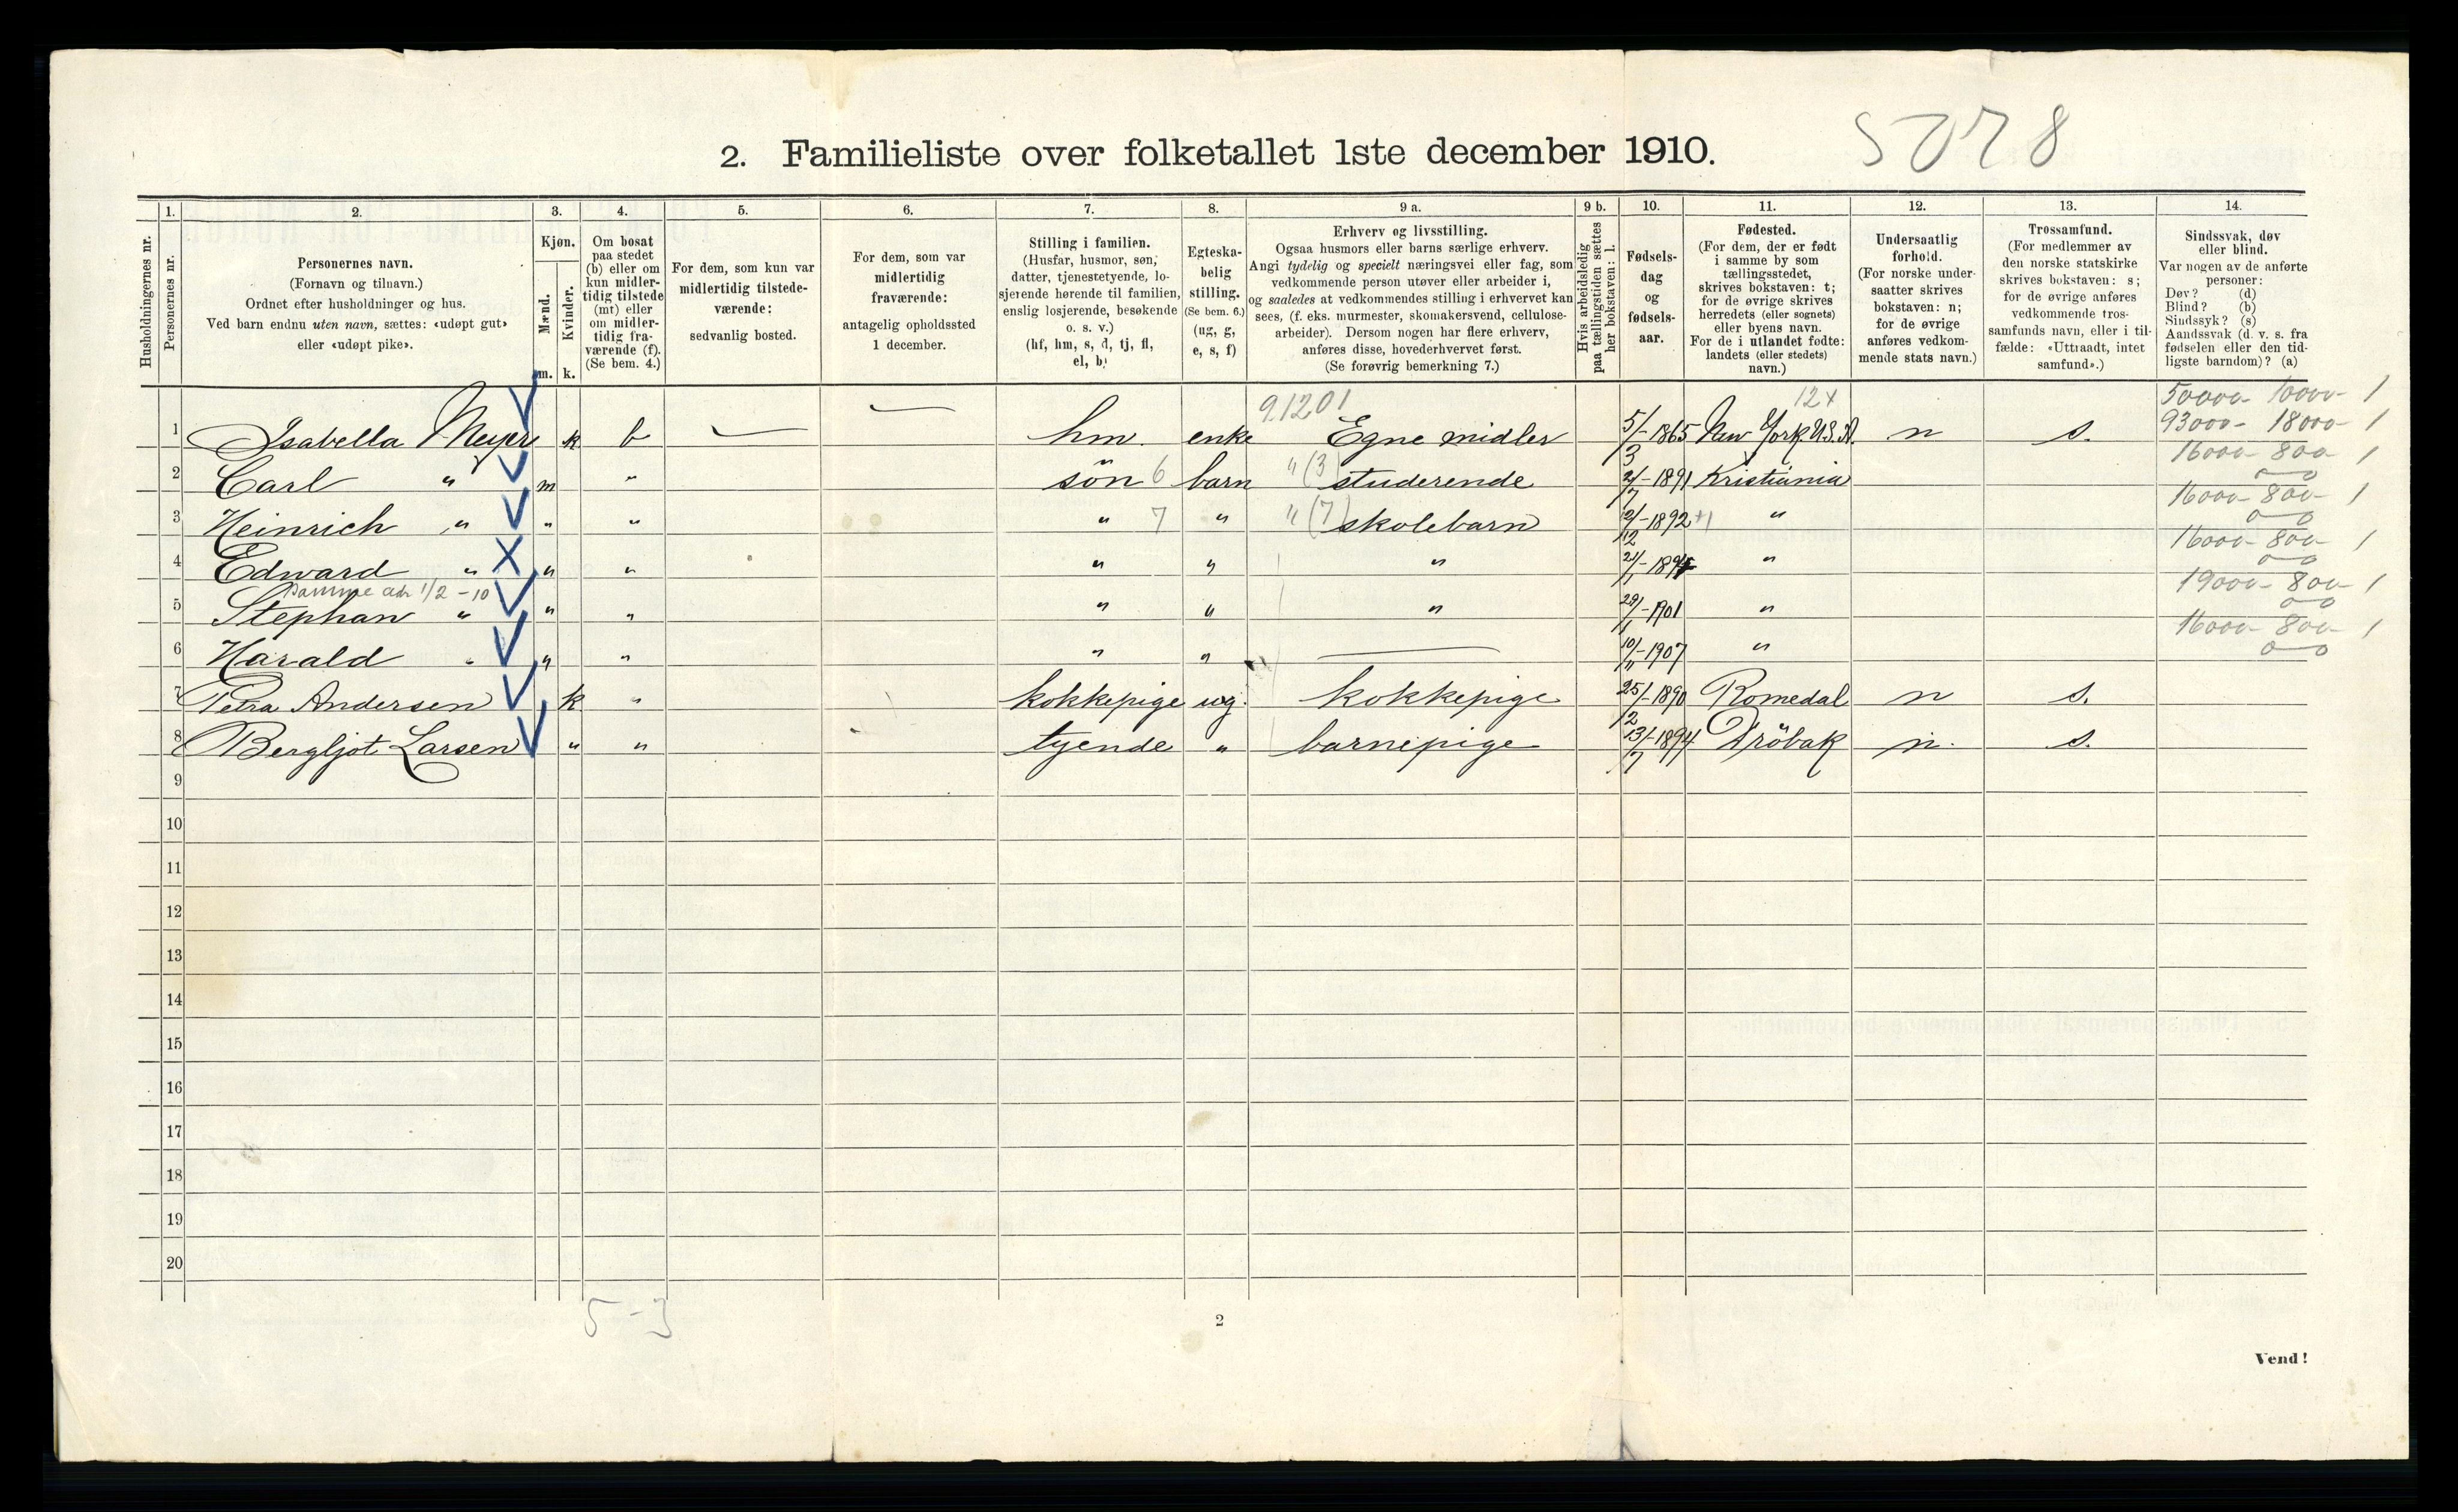 5078
2. Familieliste over folketallet 1ste december 1910.
1. 2. 3. 4. 5. 6. 7. 8. 9 a. 9 b. 10. 11. 12. 13. 14.
Husholdningernes nr.
Personernes nr.
Personernes navn.
(Fornavn og tilnavn.)
Ordnet efter husholdninger og hus.
Ved barn endnu uten navn, sættes: «udøpt gut»
eller «udøpt pike».
Kjøn.
Mænd.
Kvinder.
m. k.
Om bosat
paa stedet
(b) eller om
kun midler-
tidig tilstede
(mt) eller
om midler-
tidig fra-
værende (f).
(Se bem. 4.)
For dem, som kun var
midlertidig tilstede-
værende:
sedvanlig bosted.
For dem, som var
midlertidig
fraværende:
antagelig opholdssted
1 december.
Stilling i familien.
(Husfar, husmor, søn,
datter, tjenestetyende, lo-
sjerende hørende til familien,
enslig losjerende, besøkende
o. s. v.)
(hf, hm, s, d, tj, fl,
el, b)
Egteska-
belig
stilling.
(Se bem. 6.)
(ug, g,
e, s, f)
Erhverv og livsstilling.
Ogsaa husmors eller barns særlige erhverv.
Angi tydelig og specielt næringsvei eller fag, som
vedkommende person utøver eller arbeider i,
og saaledes at vedkommendes stilling i erhvervet kan
sees, (f. eks. murmester, skomakersvend, cellulose-
arbeider). Dersom nogen har flere erhverv,
anføres disse, hovederhvervet først.
(Se forøvrig bemerkning 7.)
Hvis arbeidsledig
paa tællingstiden sættes
her bokstaven: l.
Fødsels-
dag
og
fødsels-
aar.
Fødested.
(For dem, der er født
i samme by som
tællingsstedet,
skrives bokstaven: t;
for de øvrige skrives
herredets (eller sognets)
eller byens navn.
For de i utlandet fødte:
landets (eller stedets)
navn.)
Undersaatlig
forhold.
(For norske under-
saatter skrives
bokstaven: n;
for de øvrige
anføres vedkom-
mende stats navn.)
Trossamfund.
(For medlemmer av
den norske statskirke
skrives bokstaven: s;
for de øvrige anføres
vedkommende tros-
samfunds navn, eller i til-
fælde: «Uttraadt, intet
samfund».)
Sindssvak, døv
eller blind.
Var nogen av de anførte
personer:
Døv? (d)
Blind? (b)
Sindssyk? (s)
Aandssvak (d. v. s. fra
fødselen eller den tid-
ligste barndom)? (a)
91201 12+ 50000- 10000- 1
1 Isabella Meyer k b — — hm. enke Egne midler 5/3-1865 New York U.S.A. n s. 93000- 18000- 1
2 Carl " m " søn 6 barn " (3) studerende 2/7-1891 Kristiania 16000- 800- 1
3 Heinrich " " " " 7 " " (7) skolebarn 12/12-1892 +1 " 16000- 800- 1
4 Edward " " " " " " 21/1-1894 " 16000- 800- 1
Samme adr 1/2 -10
5 Stephan " " " " " " 29/1-1901 " 19000- 800- 1
6 Harald " " " " " — 10/11-1907 " 16000- 800- 1
7 Petra Andersen k " kokkepige ug. kokkepige 25/12-1890 Romedal n s.
8 Bergljot Larsen " " tyende " barnepige 13/7-1894 Drøbak n. s.
9
10
11
12
13
14
15
16
17
18
19
20
5-3
2
Vend!